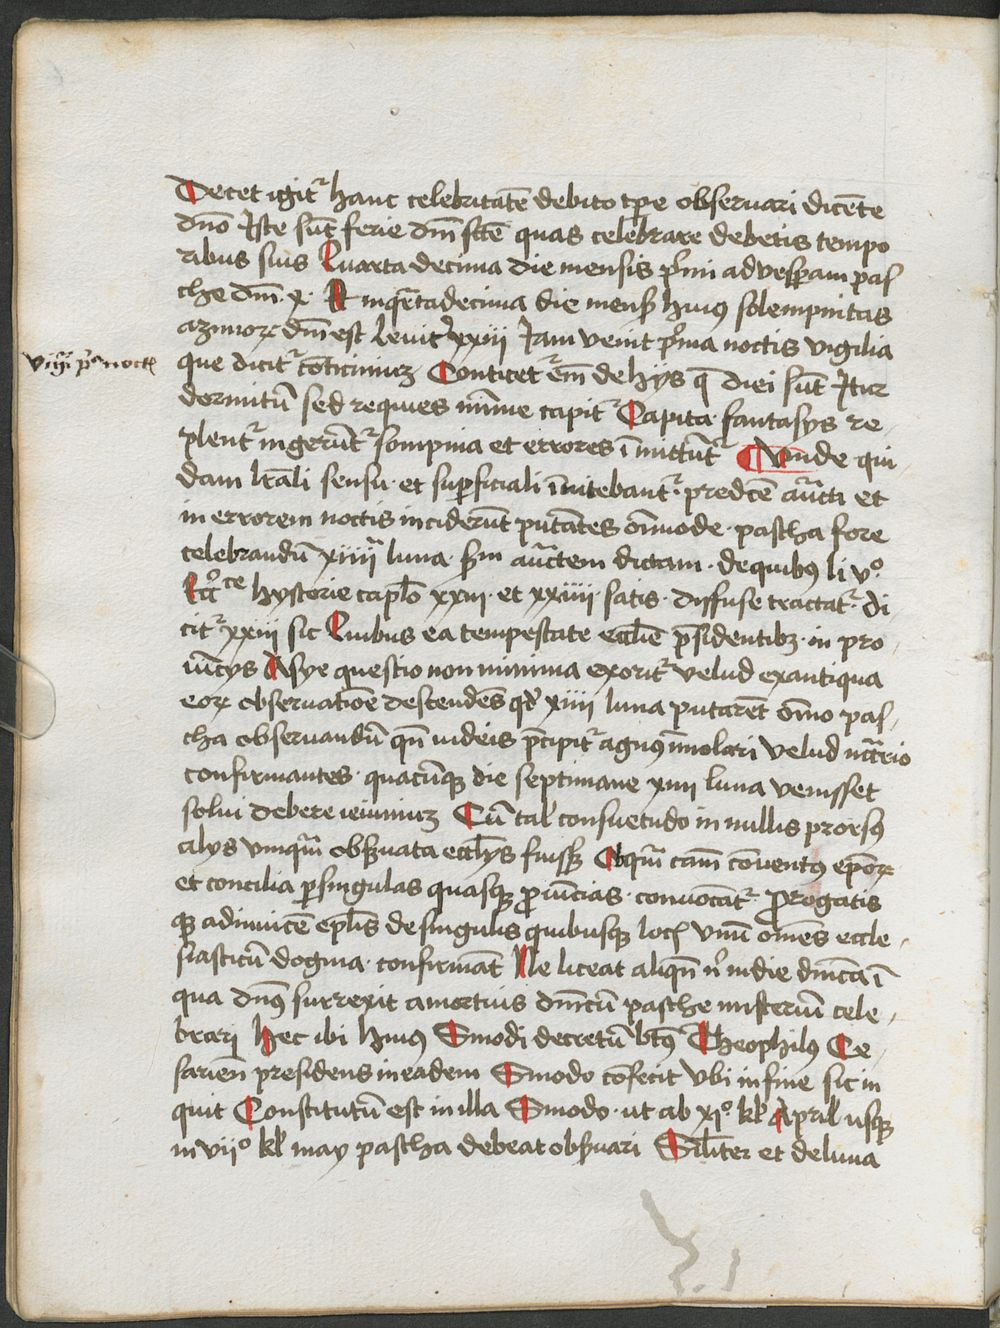 Decet igit᷑ hanc celebritatē debito tp̄e obseruari dicēte
dn̄o Iste sūt ferie dn̄i sc̄tē quas celebrare debetis tempo
ribus suis Quarta decima die mensis p̓mi ad vesp̄am pas
che dn̄i .x. Et inq̄tadecima die mens huiꝯ solempnitas
azimoꝝ dn̄i est Leuit̓ xxiii Iam venit p̓ma noctis vigilia
vig̓ p̓ᵃ noctꝭ
que dicit᷑ cōticiniuꝫ Conticet᷑ em̄ de hijs q̄ diei sūt Itur
dormitū sed requies mīme capit᷑ Capita fantasijs re
plent᷑ ingerūt᷑ sompnia et errores īmittūt᷑ Vnde qui
dam lr̄ali sensu et suꝑficiali īnitebant᷑ predc̄e auc̄ti et
in errorem noctis inciderūt putātes om̄mode pascha fore
celebrandū xiiiiᵃ luna sm̄ auc̄tem dictam de quibꝯ li vᵒ
Eccᵒ̄ᶜᵉ hystorie caplō xxiii et xxiiii satis diffuse tractat᷑ di
cit᷑ xxiii sic Quibus ea tempestate eccl̄ie p̄sidentibꝫ in pro
uīcijs Asye questio non minima exorit᷑ velud ex antiqua
eoꝝ obseruatiōe descendēs qd̓ xiiii luna putarēt om̄o pas
cha obseruandū qn̄ iudeis p̄cipit᷑ agnꝯ īmolari velud nc̄c̄rio
confirmantes quacūqꝫ die septimane xiiii luna venisset
solui debere ieiuniuꝫ Cū tal̓ consuetudo in nullis prorsꝯ
alijs vnquā obꝑuata eccl̄ijs fuiss Ob quā cām cōuentꝯ ep̄oꝝ
et concilia ꝑ singulas quasqꝫ ꝓuīcias conuocāt᷑ Prorogatis
qꝫ adinuicē epl̄is de singulis quibusqꝫ locꝭ vnū om̄es eccle
siasticū dogma confirmāt Ne liceat aliqn̄ n̓ in die dn̄ica ī
qua dn̄ꝯ surrexit a mortuis dn̄icū pasche misteriū cele
brari hec ibi Huiꝯ Sinodi decretū btꝯ̄ Theophilꝯ Ce
sarien̄ presidens in eadem Sinodo cōfecit vbi in fine sic in
quit Constitutū est in illa Sinodo ut ab xiᵒ kl̓ April usqꝫ
in viiᵒ kl̓ may pascha debeat obꝑuari Sil̄iter et de luna